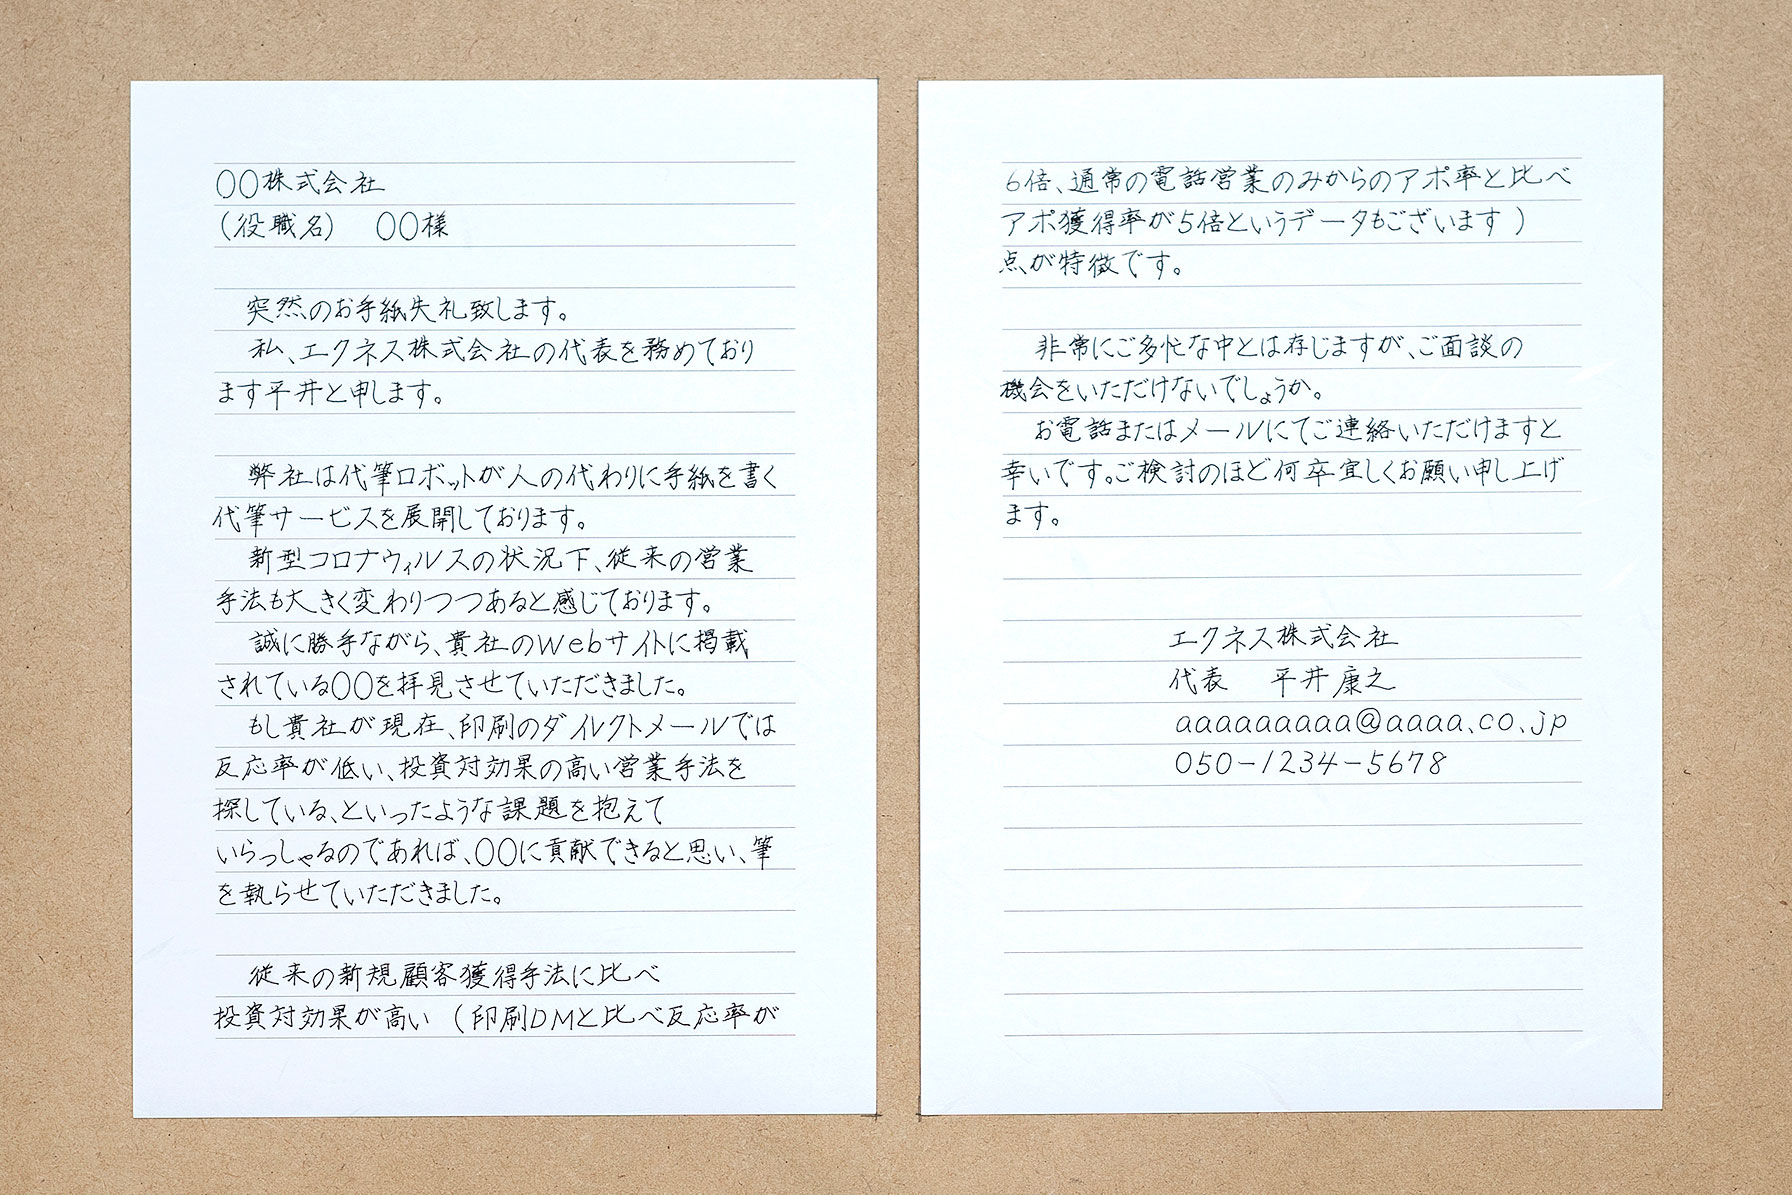 〇〇株式会社
(役職名)　〇〇様
突然のお手紙失礼致します。
私、エクネス株式会社の代表を務めており
ます平井と申します。
弊社は代筆ロボットが人の代わりに手紙を書く
代筆サービスを展開しております。
新型コロナウィルスの状況下、従来の営業
手法も大きく変わりつつあると感じております。
誠に勝手ながら、貴社のWebサイトに掲載
されている〇〇を拝見させていただきました。
もし貴社が現在、印刷のダイレクトメールでは
反応率が低い、投資対効果の高い営業手法を
探している、といったような課題を抱えて
いらっしゃるのであれば、〇〇に貢献できると思い、筆
を執らせていただきました。
従来の新規顧客獲得手法に比べ
投資対効果が高い (印刷DMと比べ反応率が
6倍、通常の電話営業のみからのアポ率と比べ
アポ獲得率が5倍というデータもございます)
点が特徴です。
非常にご多忙な中とは存じますが、ご面談の
機会をいただけないでしょうか。
お電話またはメールにてご連絡いただけますと
幸いです。ご検討のほど何卒宜しくお願い申し上げ
ます。
エクネス株式会社
代表　平井康之
aaaaaaaaa@aaaa.co.jp
050-1234-5678